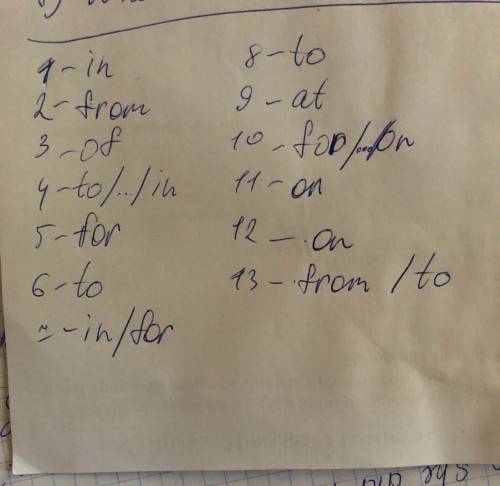 1-in
2-from
3-of
4-to/../in
5-for
6-to
~-in/for
8-to
9-at
10-for/.../on
11-on
12-on
13-from/to